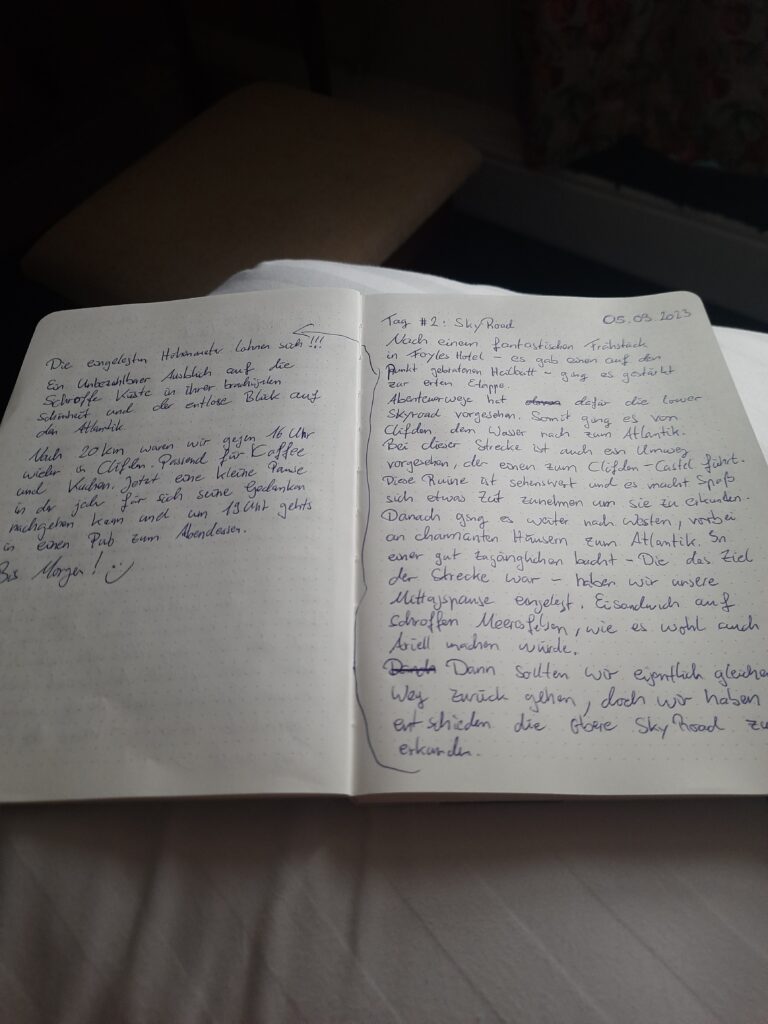 Tag #2: SkyRoad 05.09.2023
Nach einem fantastischen Frühstück
in Foyles Hotel - es gab einen auf den
Punkt gebratenen Heilbutt - ging es gestärkt
zur erten Etappe.
Abenteuerwege hat dafür die lower
Skyroad vorgesehen. Somit ging es von
Clifden dem Wasser nach zum Atlantik.
Bei dieser Strecke ist auch ein Umweg
vorgesehen, der einen zum Clifden-Castel führt.
Diese Ruine ist sehenswert und es macht Spaß
sich etwas Zeit zunehmen um sie zu erkunden.
Danach ging es weiter nach Westen, vorbei
an charmanten Häusern zum Atlantik. In
einer gut zugänglichen bucht - Die das Ziel
der Strecke war - haben wir unsere
Mittagspause eingelegt. Eisandwich auf
schroffen Meeresfelsen, wie es wohl auch
Ariell machen würde.
Dann sollten wir eigentlich gleichen
Weg zurück gehen, doch wir haben
entschieden die obere SkyRoad zu
erkunden.
Die eingelesten Höhenmeter lohnen sich!!!
Ein Unbezahlbarer Ausblich auf die
Schroffe Küste in ihrer
Schönheit und der entlose Blick auf
den Atlantik
Nach 20km waren wir gegen 16 Uhr
wieder in Clifden. Passend für Kaffee
und Kuchen. Jetzt eine kleine Pause
in der jeder für sich seine Gedanken
nachgehen kann und um 19 Uhr gehts
in einen Pub zum Abendessen.
Bis Morgen! :)